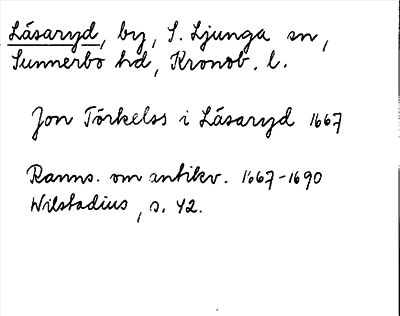 Låsaryd, by, S. Ljunga sn,
Sunnerbo hd, Kronob. l.
Jon Törkelss i Låsaryd 1667
Ranns. om antikv. 1667-1690
Wilstadius, s. 42.